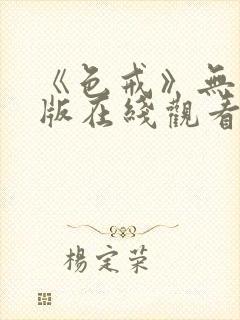 《色戒》無
版在綫觀看
楊定荣